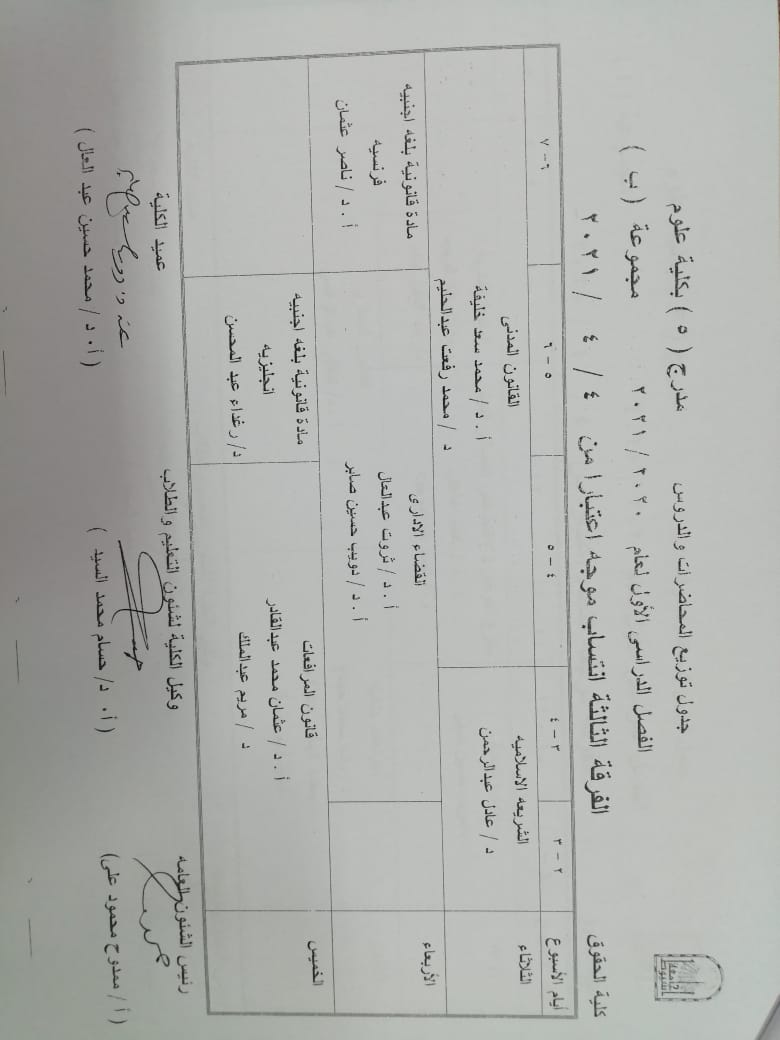 جامعة
اسيوط
كلية الحقوق
جدول توزيع المحاضرات والدروس مدرج ( ٥ ) بكلية علوم
الفصل الدراسى الأول لعام ٢٠٢٠ / ٢٠٢١ مجموعة ( ب )
الفرقة الثالثة انتساب موجه اعتبارا من ٤ / ٤ / ٢٠٢١
أيام الأسبوع ٢ - ٣ ٣ - ٤ ٤ - ٥ ٥ - ٦ ٦ - ٧
الثلاثاء
الشريعه الاسلاميه
د / عادل عبدالرحمن
القانون المدنى
أ . د / محمد سعد خليفة
د / محمد رفعت عبدالحليم
الأربعاء
القضاء الادارى
أ . د / ثروت عبدالعال
أ . د / دويب حسين صابر
مادة قانونية بلغه اجنبيه
فرنسيه
أ . د / ناصر عثمان
الخميس
قانون المرافعات
أ . د / عثمان محمد عبدالقادر
د / مريم عبدالملك
مادة قانونية بلغه اجنبيه
انجليزيه
د/ رغداء عبد المحسن
رئيس الشئون العامه
( أ / ممدوح محمود على)
وكيل الكلية لشئون التعليم والطلاب
( أ. د/ حسام محمد السيد )
عميد الكلية
( أ. د / محمد حسين عبد العال )